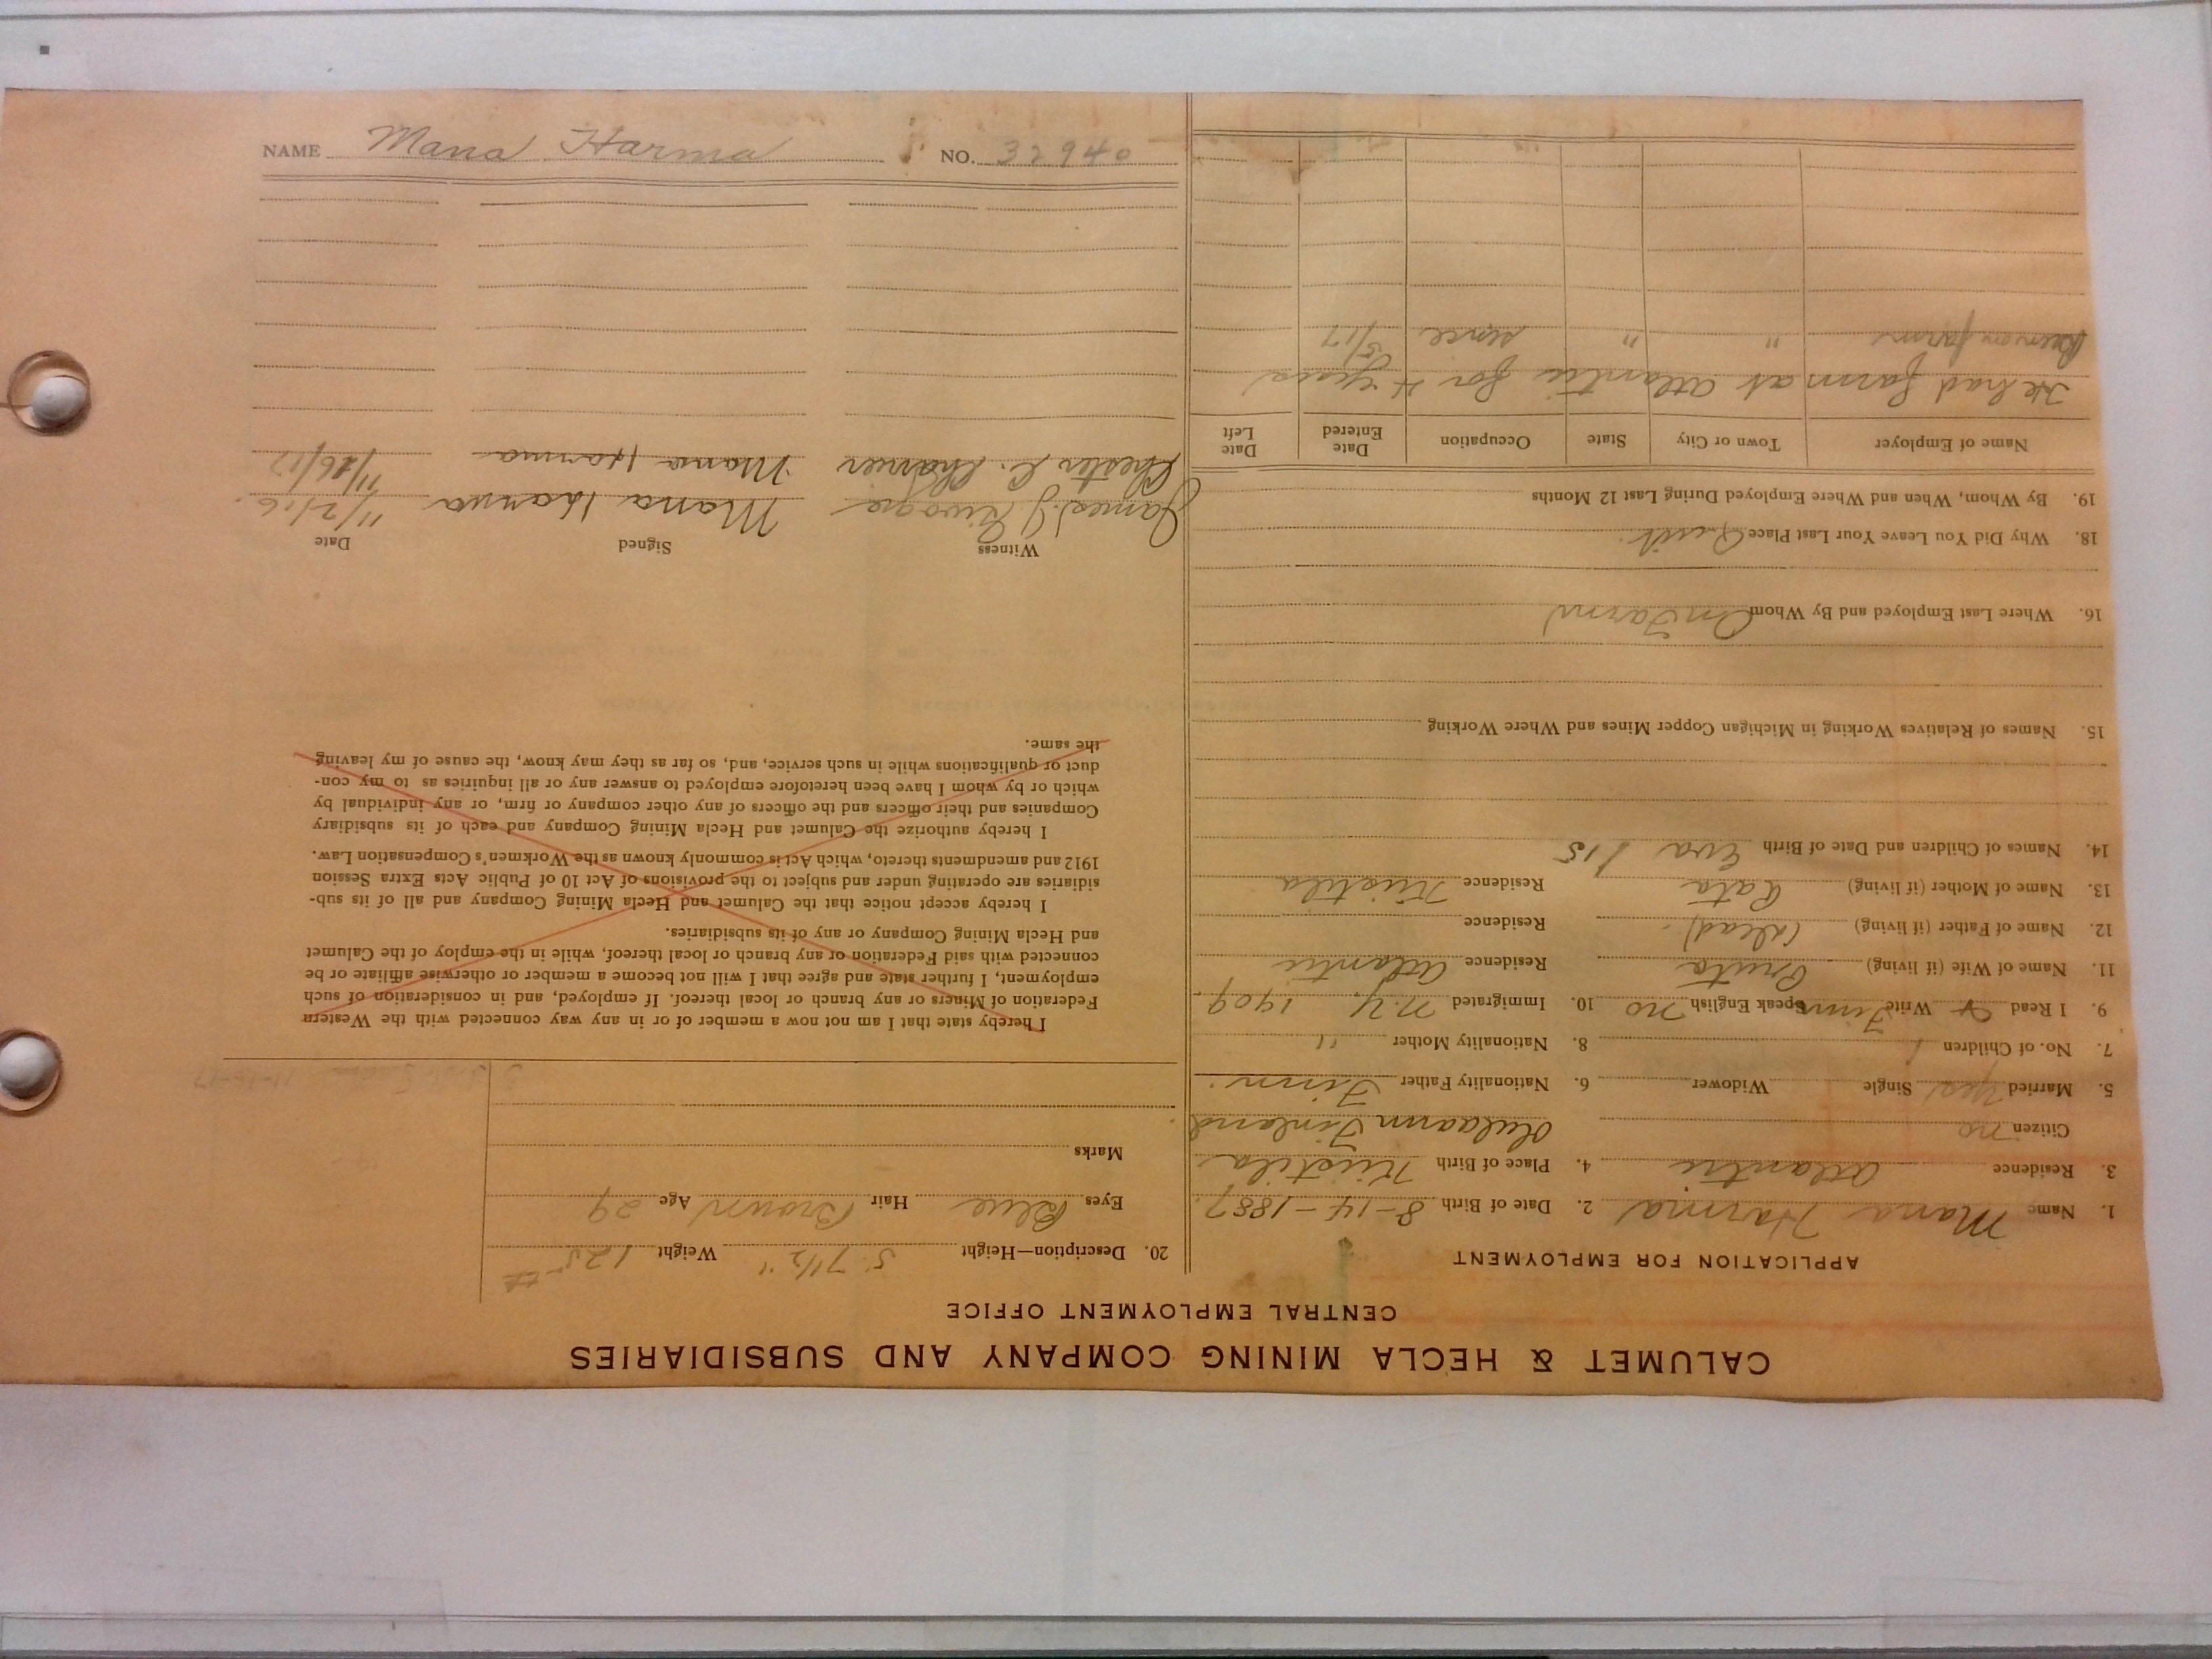 CALUMET & HECLA MINING COMPANY AND SUBSIDIARIES
CENTRAL EMPLOYMENT OFFICE
APPLICATION FOR EMPLOYMENT
1. Name Mana Harma 2. Date of Birth 8-14-1887
3. Residence Atlantic 4. Place of Birth Kiistila
Citizen no Finland
5. Married Yes Single Widower 6. Nationality Father Finn
7. No. of Children 1 8. Nationality Mother "
9. I Read & Write Finn Speak English no 10. Immigrated N.Y. 1909
11. Name of Wife (if living) Residence Atlantic
12. Name of Father (if living) (dead) Residence
13. Name of Mother (if living) Residence Kiistila
14. Names of Children and Date of Birth Eva 1/15
15. Names of Relatives Working in Michigan Copper Mines and Where Working
16. Where Last Employed and By Whom On Farm
18. Why Did You Leave Your Last Place Quit.
19. By Whom, When and Where Employed During Last 12 Months
Name of Employer Town or City State Occupation Date Entered Date Left
He had farm at Atlantic for 4 years
farm " " since 5/17
20. Description—Height 5' 7 1/2" Weight 125
Eyes Blue Hair Brown Age 29
Marks
I hereby state that I am not now a member of or in any way connected with the Western
Federation of Miners or any branch or local thereof. If employed, and in consideration of such
employment, I further state and agree that I will not become a member or otherwise affiliate or be
connected with said Federation or any branch or local thereof, while in the employ of the Calumet
and Hecla Mining Company or any of its subsidiaries.
I hereby accept notice that the Calumet and Hecla Mining Company and all of its sub-
sidiaries are operating under and subject to the provisions of Act 10 of Public Acts Extra Session
1912 and amendments thereto, which Act is commonly known as the Workmen's Compensation Law.
I hereby authorize the Calumet and Hecla Mining Company and each of its subsidiary
Companies and their officers and the officers of any other company or firm, or any individual by
which or by whom I have been heretofore employed to answer any or all inquiries as to my con-
duct or qualifications while in such service, and, so far as they may know, the cause of my leaving
the same.
Witness Signed Date
James J. Mana Harma 11/2/16
Chester C. Mana Harma 11/26/17
NAME Mana Harma NO. 32940